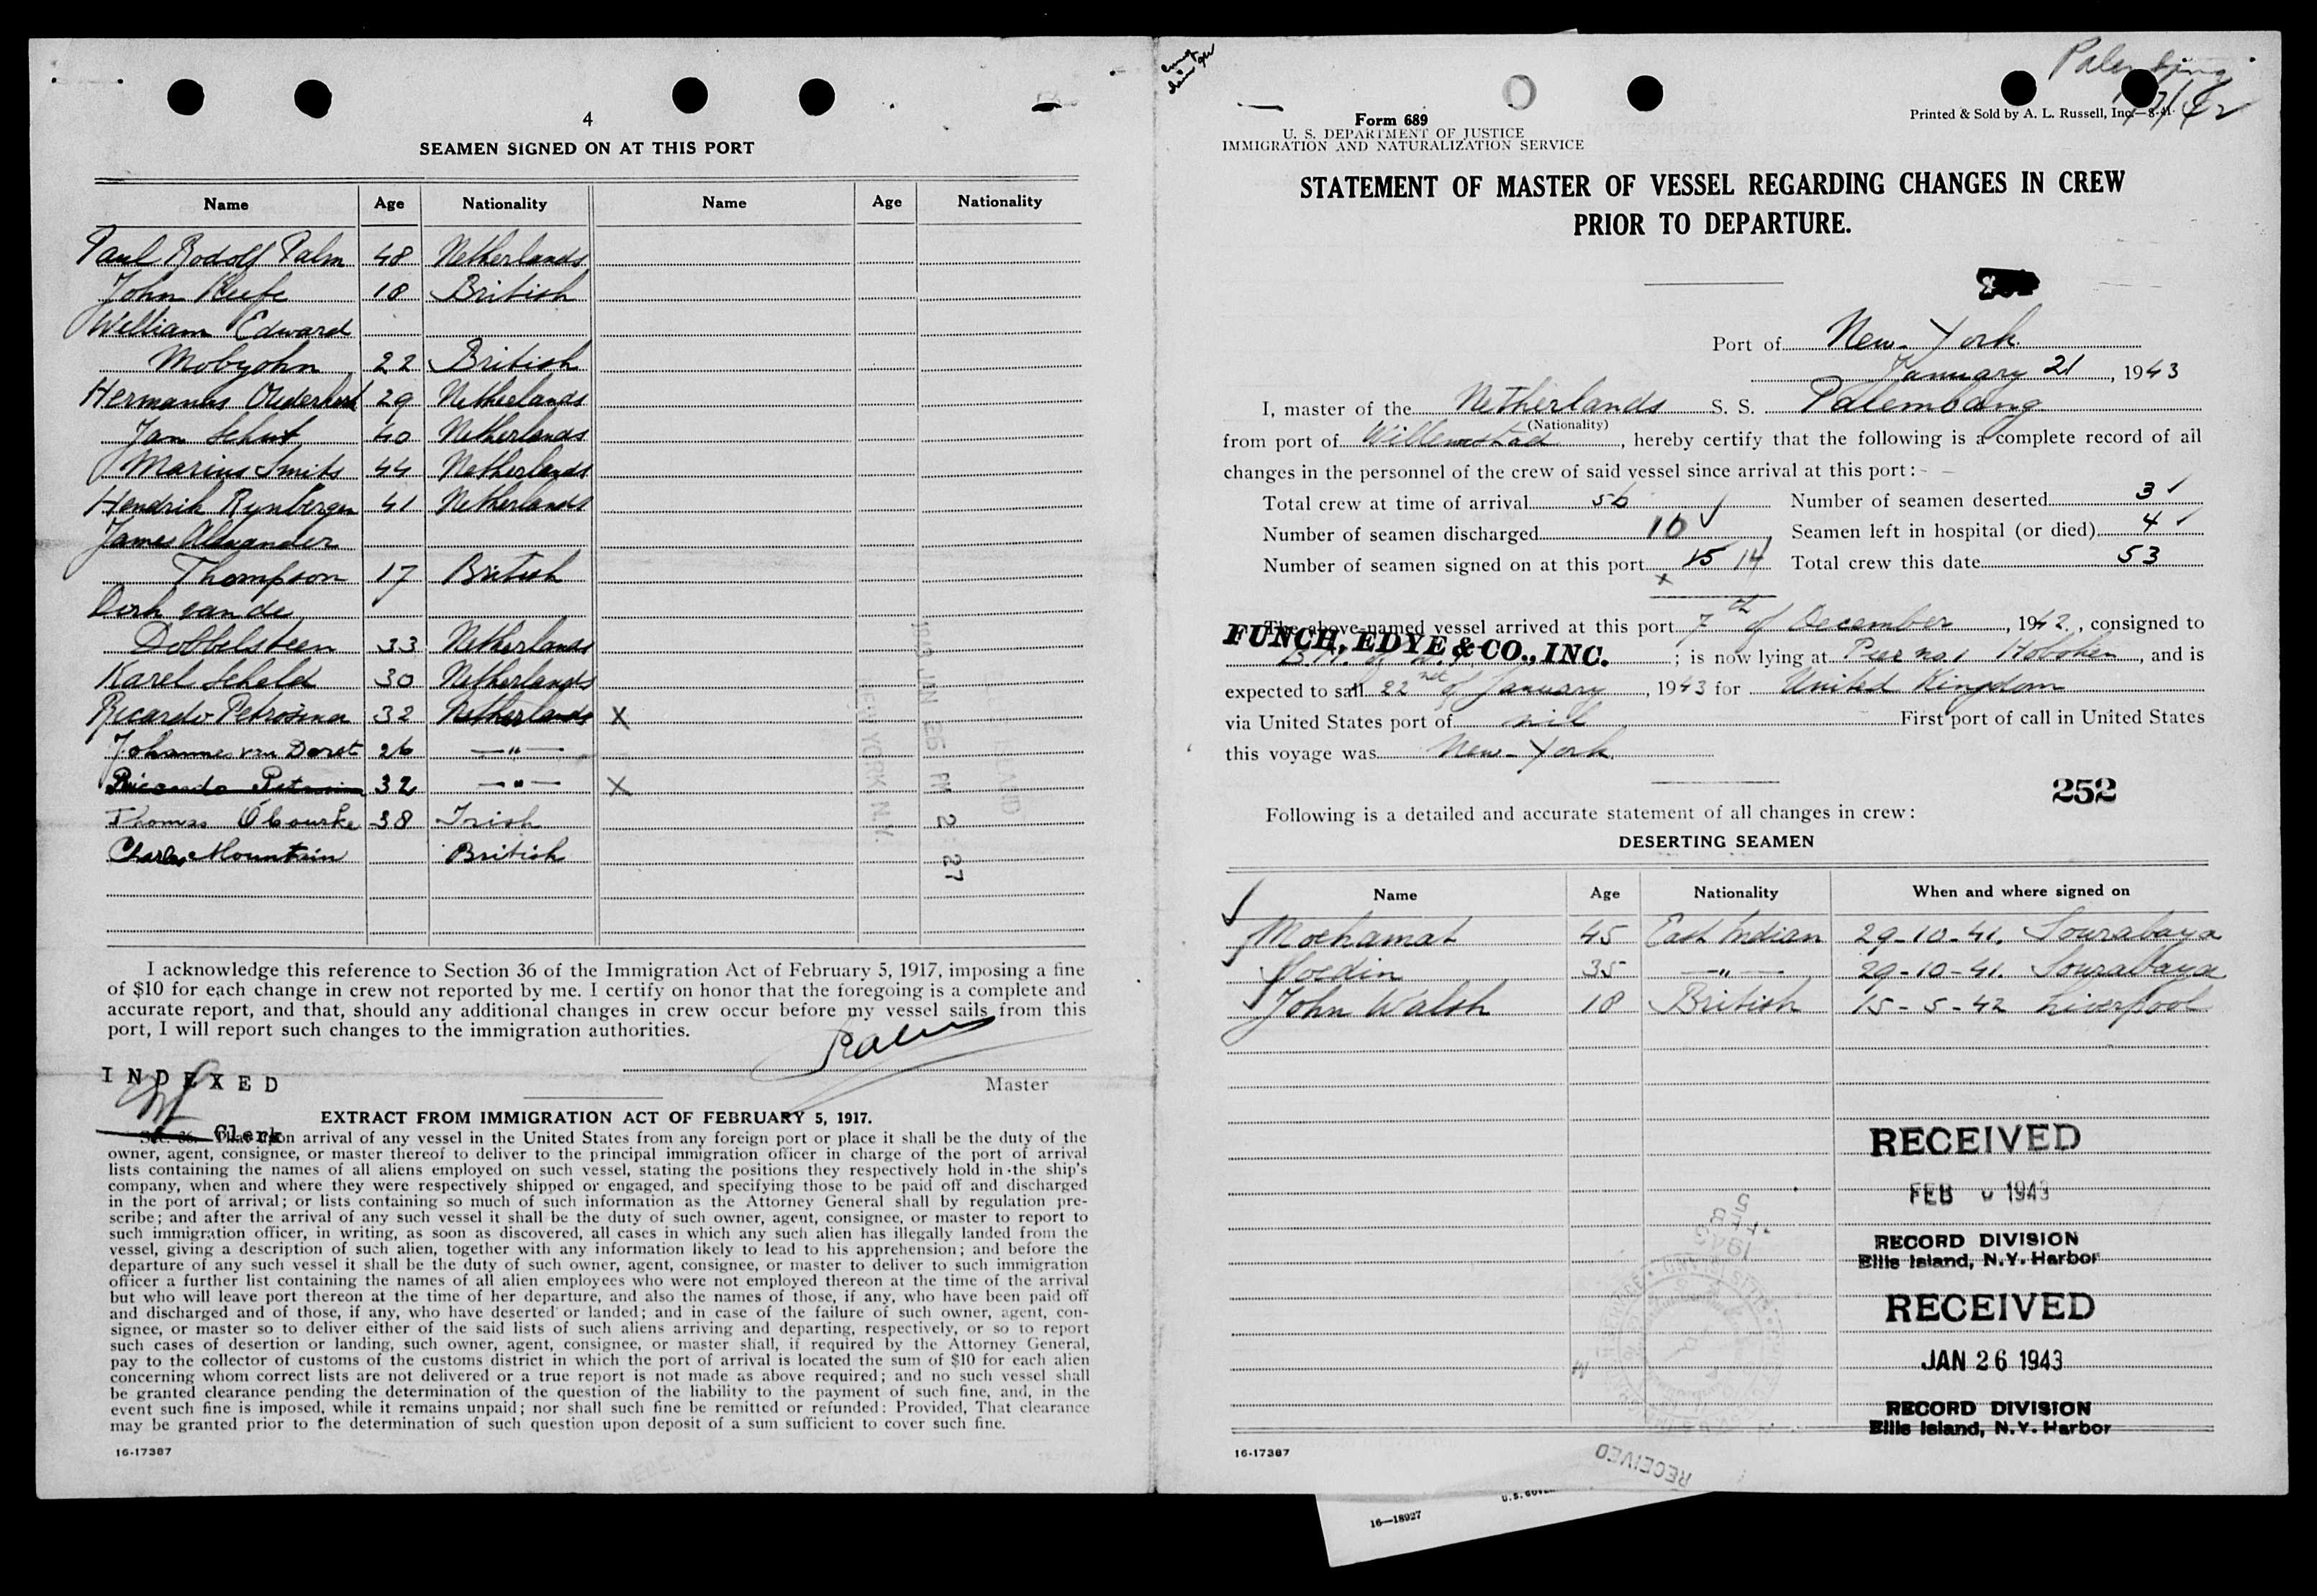 4
SEAMEN SIGNED ON AT THIS PORT
Name Age Nationality Name Age Nationality
Paul Rodolf Palm 48 Netherlands
John Keefe 18 British
William Edward
Mobyohn 22 British
Hermanus 29 Netherlands
Jan Schut 40 Netherlands
Marinus Smits 44 Netherlands
Hendrik Rynbergen 41 Netherlands
James Alexander
Thompson 17 British
Dirk van de
Dobbelsteen 33 Netherlands
Karel Scheld 30 Netherlands
Ricardo Petrosina 32 Netherlands X
Johannes van Dorst 26 —"—
32 —"— X
Thomas O'bourke 38 Irish
Charles Mountain British
I acknowledge this reference to Section 36 of the Immigration Act of February 5, 1917, imposing a fine
of $10 for each change in crew not reported by me. I certify on honor that the foregoing is a complete and
accurate report, and that, should any additional changes in crew occur before my vessel sails from this
port, I will report such changes to the immigration authorities.
Palm
Master
INDEXED
Clerk
EXTRACT FROM IMMIGRATION ACT OF FEBRUARY 5, 1917.
Sec. 36. That upon arrival of any vessel in the United States from any foreign port or place it shall be the duty of the
owner, agent, consignee, or master thereof to deliver to the principal immigration officer in charge of the port of arrival
lists containing the names of all aliens employed on such vessel, stating the positions they respectively hold in the ship's
company, when and where they were respectively shipped or engaged, and specifying those to be paid off and discharged
in the port of arrival; or lists containing so much of such information as the Attorney General shall by regulation pre-
scribe; and after the arrival of any such vessel it shall be the duty of such owner, agent, consignee, or master to report to
such immigration officer, in writing, as soon as discovered, all cases in which any such alien has illegally landed from the
vessel, giving a description of such alien, together with any information likely to lead to his apprehension; and before the
departure of any such vessel it shall be the duty of such owner, agent, consignee, or master to deliver to such immigration
officer a further list containing the names of all alien employees who were not employed thereon at the time of the arrival
but who will leave port thereon at the time of her departure, and also the names of those, if any, who have been paid off
and discharged and of those, if any, who have deserted or landed; and in case of the failure of such owner, agent, con-
signee, or master so to deliver either of the said lists of such aliens arriving and departing, respectively, or so to report
such cases of desertion or landing, such owner, agent, consignee, or master shall, if required by the Attorney General,
pay to the collector of customs of the customs district in which the port of arrival is located the sum of $10 for each alien
concerning whom correct lists are not delivered or a true report is not made as above required; and no such vessel shall
be granted clearance pending the determination of the question of the liability to the payment of such fine, and, in the
event such fine is imposed, while it remains unpaid; nor shall such fine be remitted or refunded: Provided, That clearance
may be granted prior to the determination of such question upon deposit of a sum sufficient to cover such fine.
16-17387
NEW YORK, N.Y.
1943 JAN 26 PM 2 27
Palembang
Form 689
U. S. DEPARTMENT OF JUSTICE
IMMIGRATION AND NATURALIZATION SERVICE
Printed & Sold by A. L. Russell, Inc.—8-41
STATEMENT OF MASTER OF VESSEL REGARDING CHANGES IN CREW
PRIOR TO DEPARTURE.
Port of New-York
January 21, 1943
I, master of the Netherlands S. S. Palembang
(Nationality)
from port of Willemstad, hereby certify that the following is a complete record of all
changes in the personnel of the crew of said vessel since arrival at this port:
Total crew at time of arrival 56 Number of seamen deserted 3 ✓
Number of seamen discharged 10 ✓ Seamen left in hospital (or died) 4 ✓
Number of seamen signed on at this port 15 14 Total crew this date 53
x
The above-named vessel arrived at this port 7th of December, 1942, consigned to
FUNCH, EDYE & CO., INC.; is now lying at Pier no. 1 Hoboken, and is
expected to sail 22nd of January, 1943 for United Kingdom
via United States port of nil First port of call in United States
this voyage was New-York.
252
Following is a detailed and accurate statement of all changes in crew:
DESERTING SEAMEN
Name Age Nationality When and where signed on
Mochamat 45 East Indian 29-10-41. Sourabaya
35 —"— 29-10-41. Sourabaya
John Walsh 18 British 15-5-42 Liverpool
RECEIVED
FEB 1943
RECORD DIVISION
Ellis Island, N.Y. Harbor
RECEIVED
JAN 26 1943
RECORD DIVISION
Ellis Island, N.Y. Harbor
16-17387
RECEIVED
16—18927